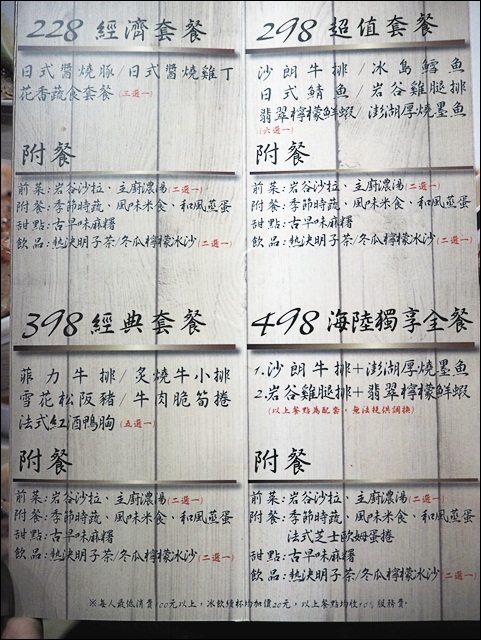 228 經濟套餐
日式醬燒豚/日式醬燒雞丁
花香蔬食套餐(三選一)
附餐
前菜:岩谷沙拉、主廚濃湯(二選一)
附餐:季節時蔬、風味米食、和風蒸蛋
甜點:古早味麻糬
飲品:熱決明子茶/冬瓜檸檬冰沙(二選一)
298 超值套餐
沙朗牛排/冰島鱈魚
日式鯖魚/岩谷雞腿排
翡翠檸檬鮮蝦/澎湖厚燒墨魚
(六選一)
附餐
前菜:岩谷沙拉、主廚濃湯(二選一)
附餐:季節時蔬、風味米食、和風蒸蛋
甜點:古早味麻糬
飲品:熱決明子茶/冬瓜檸檬冰沙(二選一)
398 經典套餐
菲力牛排/炙燒牛小排
雪花松阪豬/牛肉脆筍捲
法式紅酒鴨胸(五選一)
附餐
前菜:岩谷沙拉、主廚濃湯(二選一)
附餐:季節時蔬、風味米食、和風蒸蛋
甜點:古早味麻糬
飲品:熱決明子茶/冬瓜檸檬冰沙(二選一)
498 海陸獨享全餐
1.沙朗牛排+澎湖厚燒墨魚
2.岩谷雞腿排+翡翠檸檬鮮蝦
(以上餐點為配套,無法提供調換)
附餐
前菜:岩谷沙拉、主廚濃湯(二選一)
附餐:季節時蔬、風味米食、和風蒸蛋
法式芝士歐姆蛋捲
甜點:古早味麻糬
飲品:熱決明子茶/冬瓜檸檬冰沙(二選一)
※每人最低消費100元以上,冰飲續杯均加價20元,以上餐點均收10%服務費.